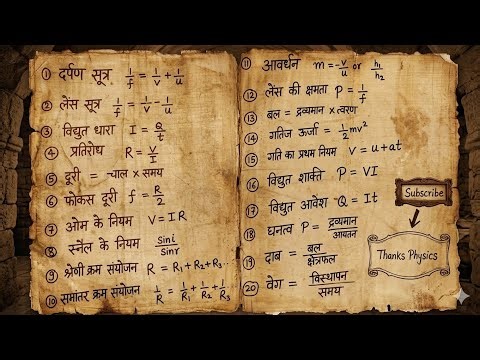 ① दर्पण सूत्र 1/f = 1/v + 1/u
② लेंस सूत्र 1/f = 1/v - 1/u
③ विद्युत धारा I = Q/t
④ प्रतिरोध R = V/I
⑤ दूरी = चाल × समय
⑥ फोकस दूरी f = R/2
⑦ ओम के नियम V = IR
⑧ स्नैल के नियम sini/sinr
⑨ श्रेणी क्रम संयोजन R = R₁ + R₂ + R₃..
⑩ समांतर क्रम संयोजन 1/R = 1/R₁ + 1/R₂ + 1/R₃
⑪ आवर्धन m = -v/u or h₁/h₂
⑫ लेंस की क्षमता P = 1/f
⑬ बल = द्रव्यमान × त्वरण
⑭ गतिज ऊर्जा = 1/2 mv²
⑮ गति का प्रथम नियम V = u + at
⑯ विद्युत शाक्ति P = VI
⑰ विद्युत आवेश Q = It
⑱ घनत्व P = द्रव्यमान/आयतन
⑲ दाब = बल/क्षेत्रफल
⑳ वेग = विस्थापन/समय
Subscribe
Thanks Physics